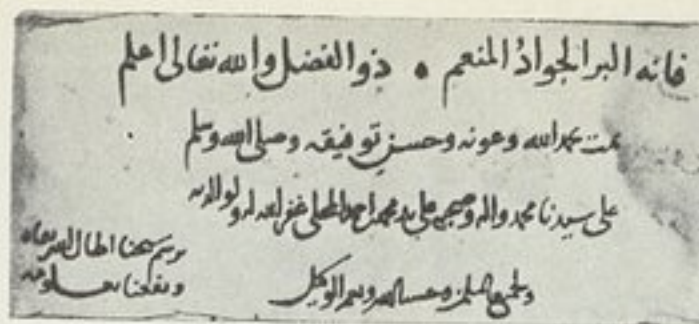 فانه البر الجوادُ المنعم • ذو الفضل والله تعالى اعلم
تمت بحمد الله وعونه وحسن توفيقه وصلى الله وسلم
على سيدنا محمد واله وصحبه على يد محمد احمد المحلى غفر الله له ولوالديه
ولجميع المسلمين وحسبنا الله ونعم الوكيل
برسم شيخنا اطال الله بقاه
ونفعنا بعلومه